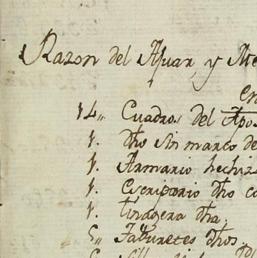 Razon del Ajuar, y Me
en
14,, Cuadros del Apos
1. dho sin marco de
1. Armario hechiz
1. Escriptorio dho c
1. tinagera dha,
5,, Taburetes dhos,